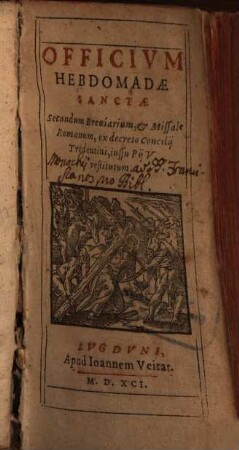 OFFICIVM
HEBDOMADÆ
SANCTÆ
Secundum Breviarium, & Missale
Romanum, ex decreto Concilij
Tridentini, iussu Pij V.
Monachij restitutum ad PP. Franci-
scanos
LVGDVNI,
Apud Ioannem Veirat.
M. D. XCI.